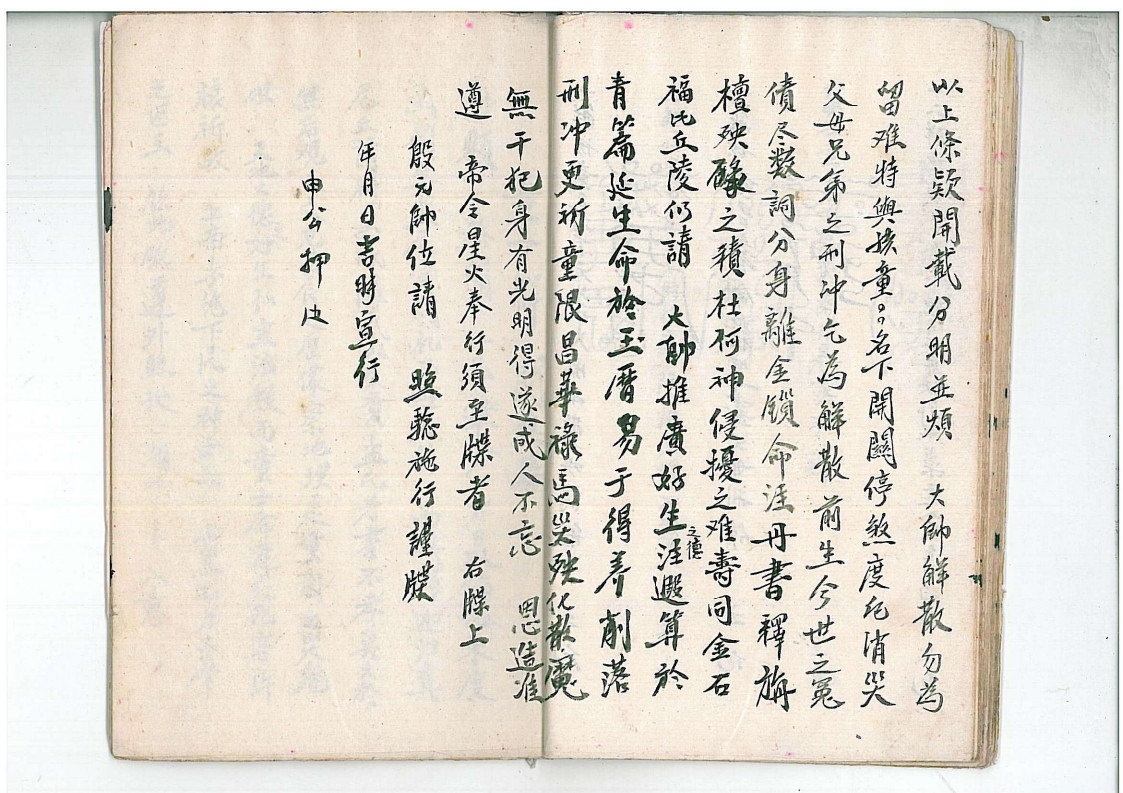 以上條款開載分明並煩　大帥解散勿為
留难特與接童〻名下開關停煞度厄消災
父母兄弟之刑冲乞為解散前生今世之冤
債尽数詞分身離金鎖命注丹書釋旃
檀殃　之積杜何神侵擾之难壽同金石
福比丘陵仍請　大帥推廣好生之德注遐算於
青篇延生命於玉曆易于得养削落
刑冲更祈童限昌華祿馬災殃化散魔
無干犯身有光明得遂成人不忘　恩造准
遵　帝令星火奉行須至牒者　右牒上
殷元帥位請　照驗施行謹牒
年月日吉時宣行
申公押